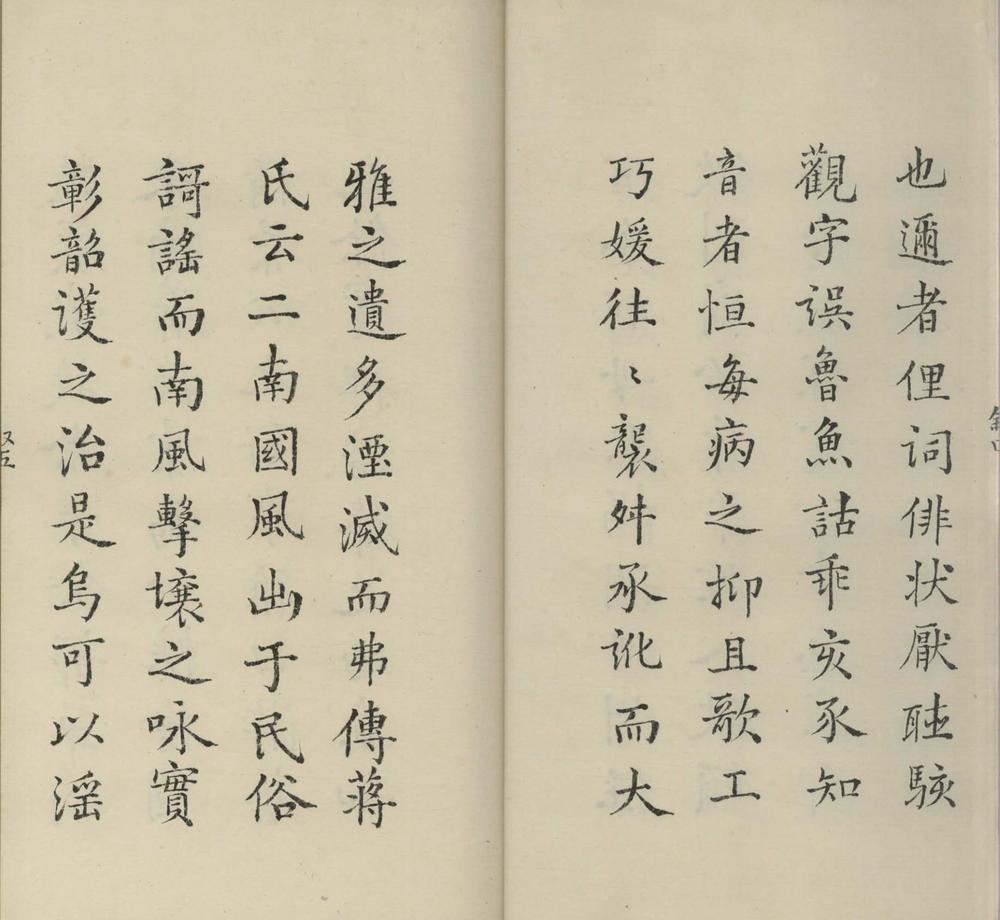 也邇者俚词俳状厭聴駭
觀字误魯魚詁乖亥豕知
音者恒每病之抑且歌工
巧媛往〻襲舛承訛而大
雅之遺多湮滅而弗傳蒋
氏云二南國風出于民俗
謌謠而南風擊壌之咏實
彰韶護之治是烏可以淫